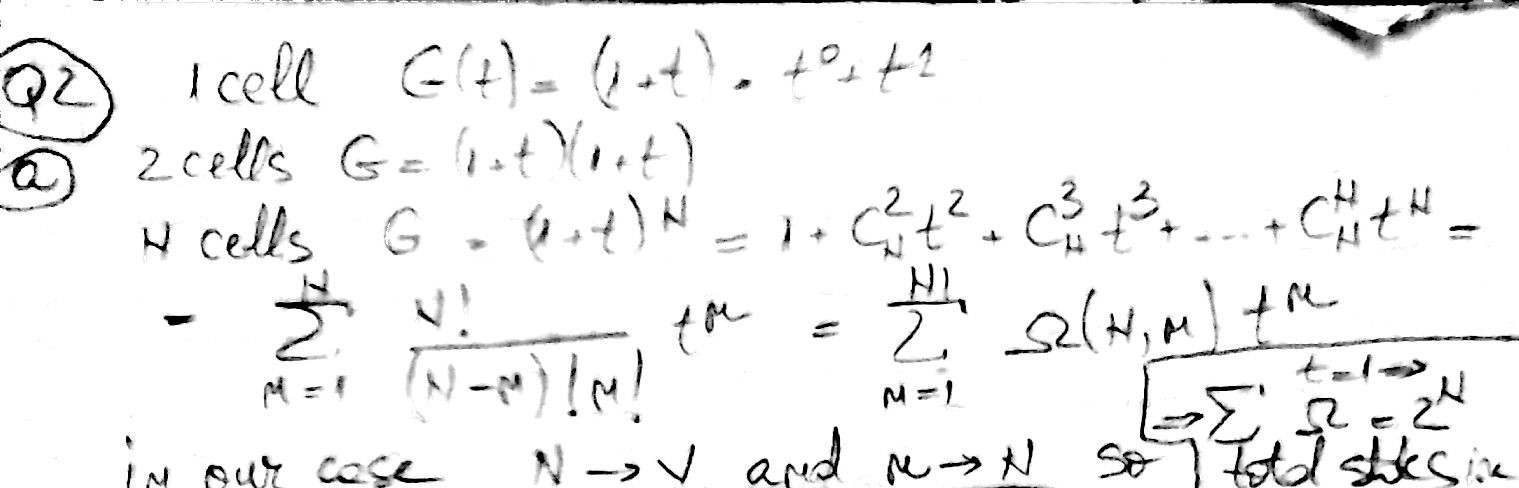 Q2 1 cell G(t) = (1+t) = t⁰ + t¹
a 2 cells G = (1+t)(1+t)
N cells G = (1+t)^N = 1 + C_N^2 t^2 + C_N^3 t^3 + ... + C_N^N t^N =
= \sum_{n=1}^{N} \frac{N!}{(N-n)! n!} t^n = \sum_{n=1}^{N} Ω(N,n) t^n
t=1 ⇒
⇒ Σ Ω = 2^N
in our case N → V and n → N so total states in